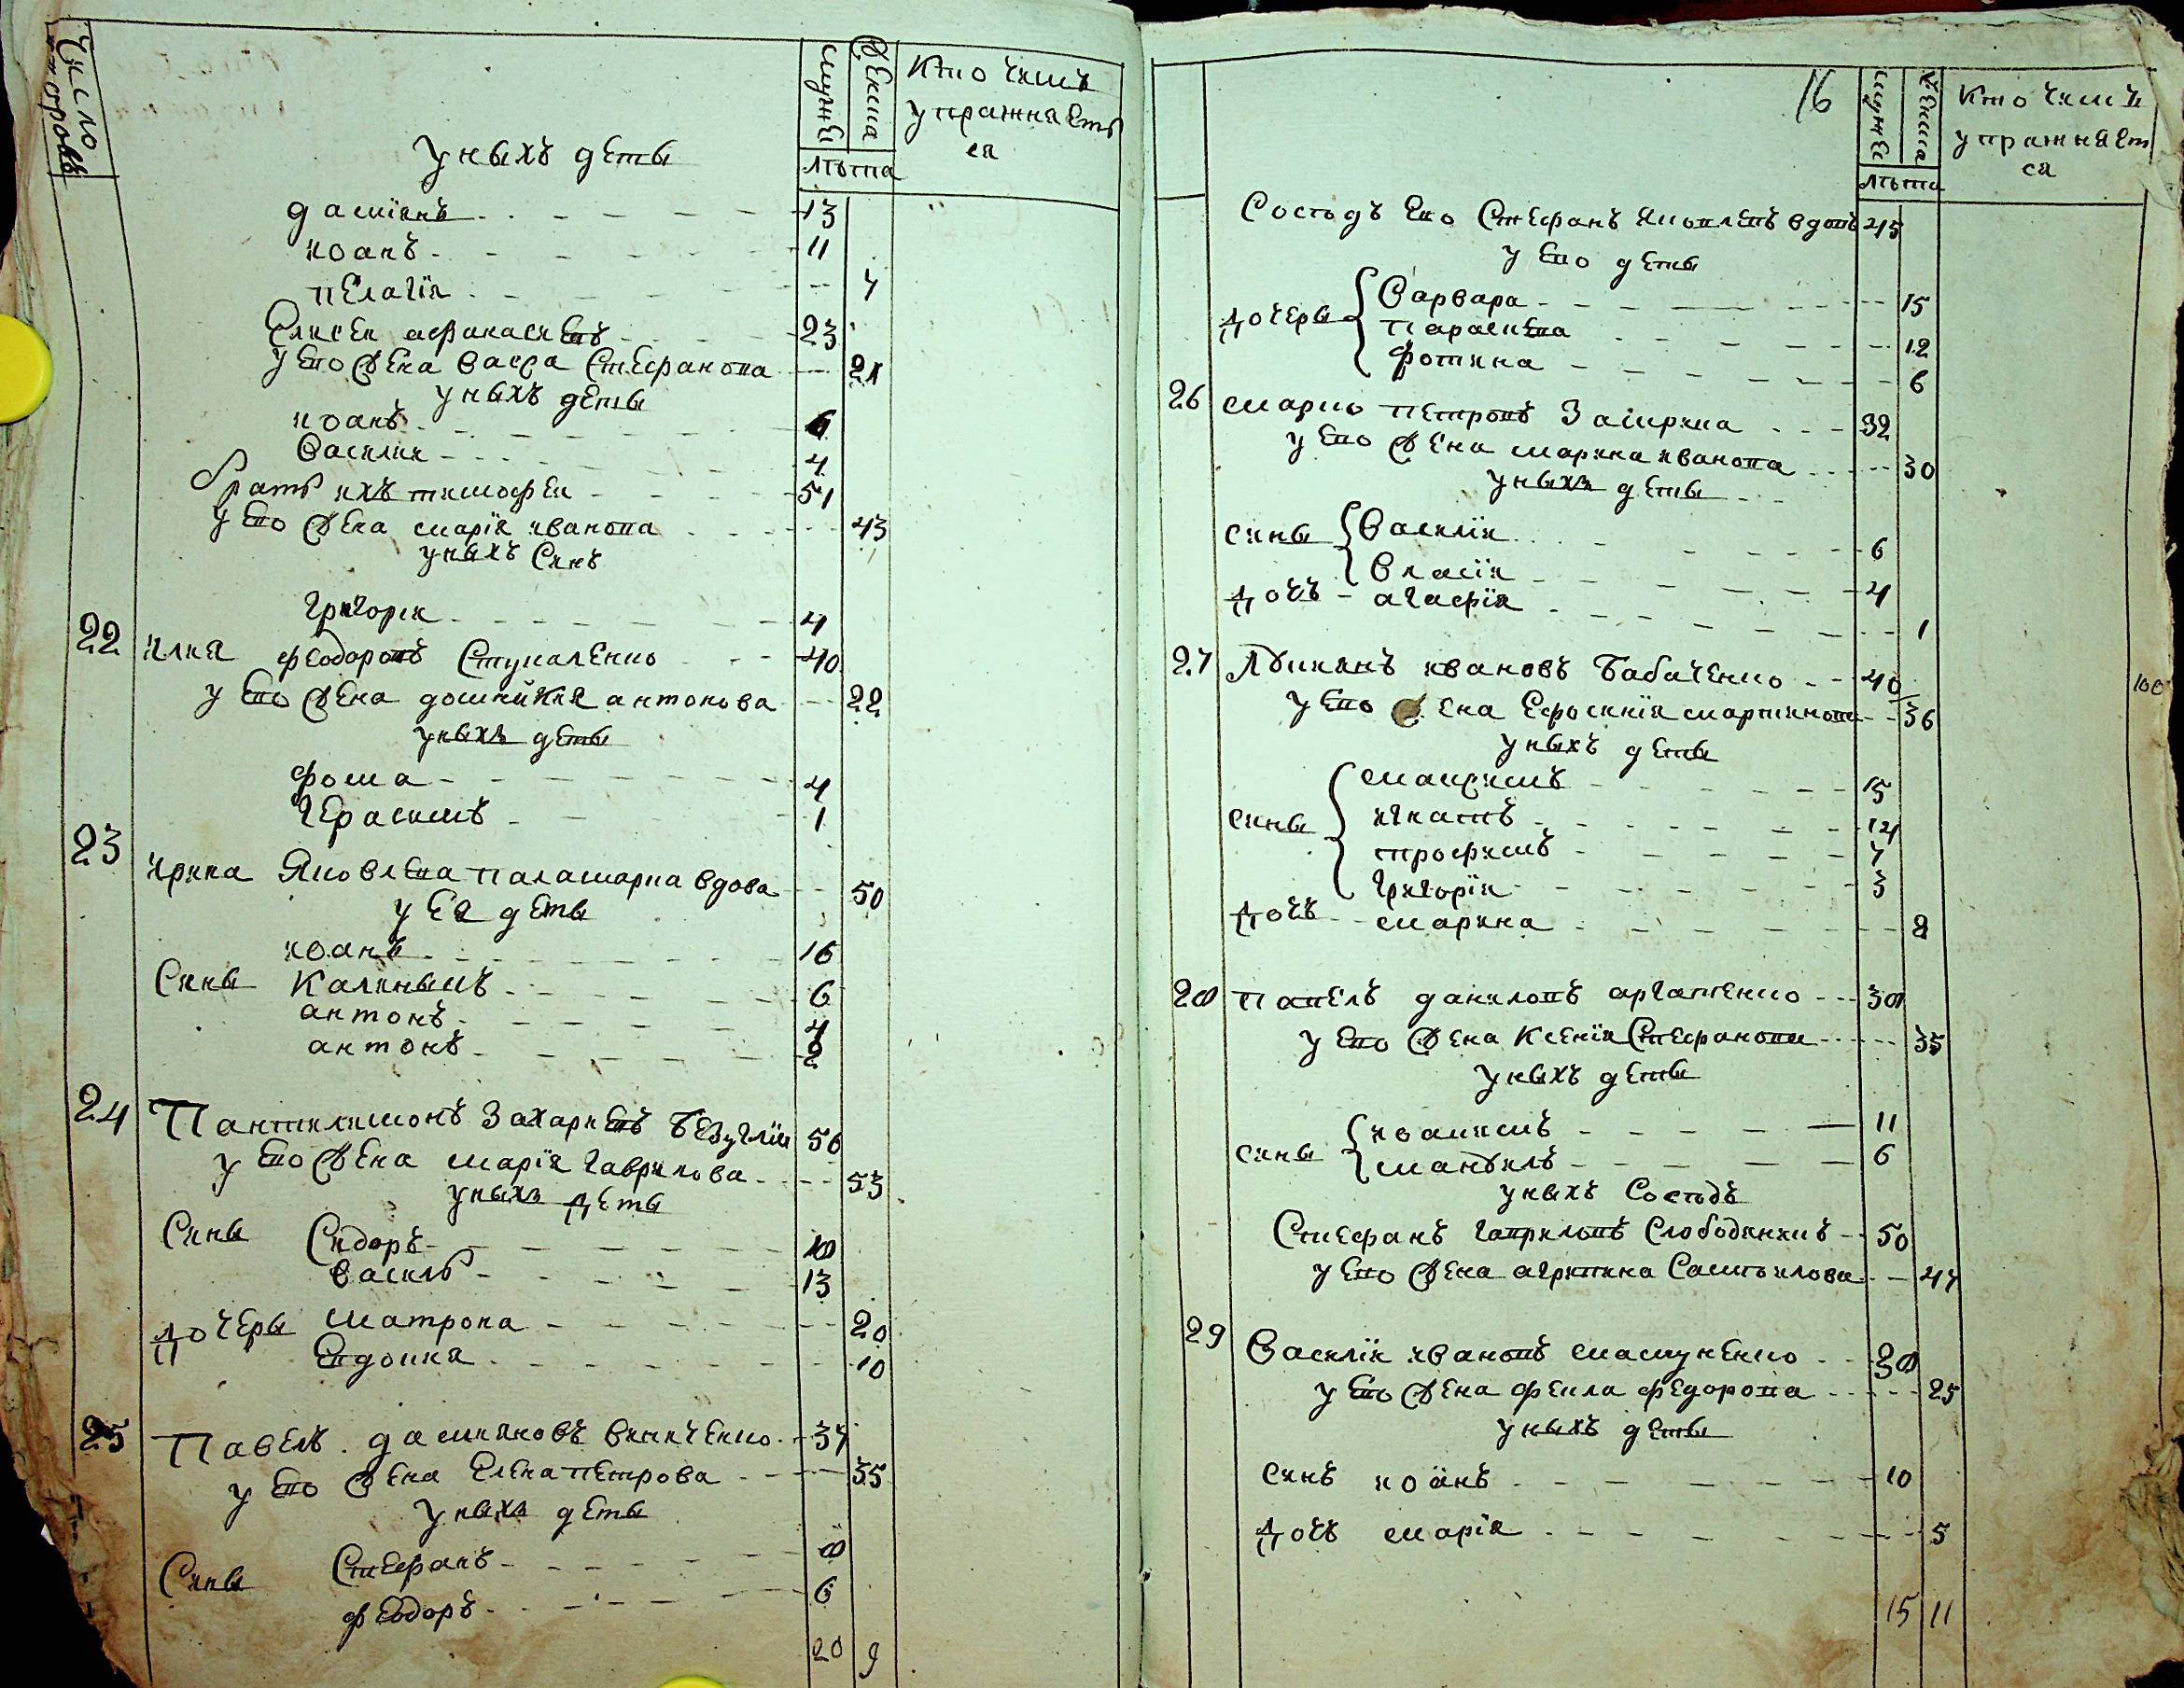 Число дворовъ
мужеска
женска
лѣта
Кто чемъ упражняеть ся
у ныхъ деты
дамїянъ 13
иоанъ 11
пелагїя 7
Елисеи афанасиевъ 23
у его жена васса Стефанова 21
у ныхъ деты
иоанъ 6
Василии 4
братъ ихъ тимофеи 51
у его жена марїя иванова 43
у ныхъ Синъ
григории 4
22 илия феодоровъ Ступаленко 40
у его жена домникия антонова 22
у ныхъ деты
фома 4
герасимъ 1
23 ирина Яковлева паламарка вдова 50
у Ея деты
иоанъ 16
Сины Калиныкъ 6
антонъ 4
антонъ 2
24 Пантилимонъ Захариевъ Безуглїи 56
у его жена марїя гаврилова 53
у ныхъ деты
Сины Сидоръ 18
василь 13
дочеры матрона 20
Евдокия 10
25 Павелъ дамияновъ виниченко 37
у его жена Елена петрова 35
у ныхъ деты
Сины Стефанъ 8
феодоръ 6
20 9
16
мужеска
женска
лѣта
Кто чемъ упражняет ся
Сосѣдъ его Стефанъ Яковлевъ вдовъ 45
у его деты
дочеры Варвара 15
параскева 12
фотина 6
26 марко петровъ 32
у его жена марина иванова 30
у ныхъ деты
сины Василїи 6
Власїи 4
дочъ агафїя 1
27 Лукиянъ ивановъ Бабаченко 40
у его жена Ефросинїя мартинова 36
у ныхъ деты
сины маѯимъ 15
игнатъ 12
трофимъ 7
григорїи 3
дочъ марина 8
28 павелъ даниловъ 38
у его жена Ксенїя Стефанова 35
у ныхъ деты
сины иоакимъ 11
мануилъ 6
у ныхъ Сосѣдъ
Стефанъ гавриловъ Слободяникъ 50
у его жена агрипина Самѣилова 47
29 Василїи ивановъ 38
у его жена фекла федорова 25
у ныхъ деты
синъ иоанъ 10
дочъ марїя 5
15 11
100